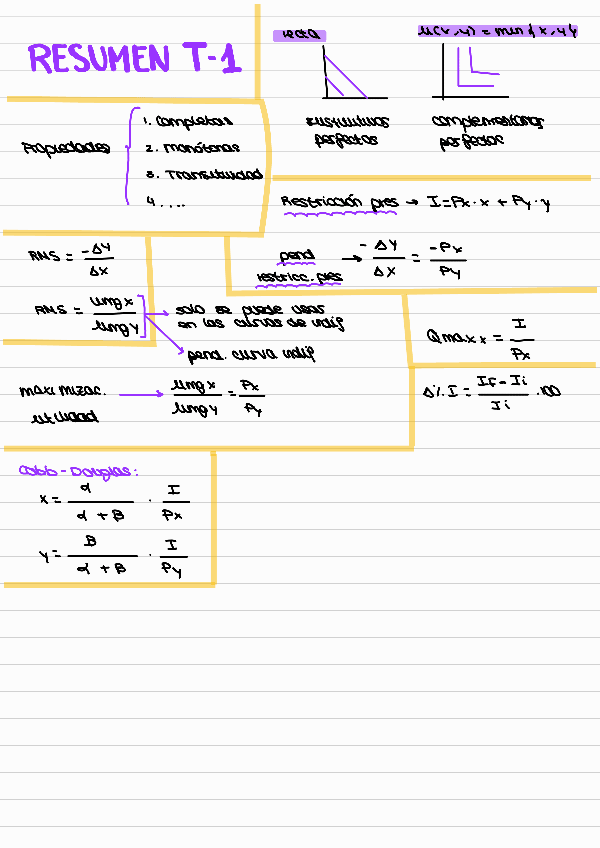 RESUMEN T-1
recta
u(x,y) = min{x,y}
sustitutivos
perfectos
complementarios
perfectos
Propiedades
1. Completas
2. Monótonas
3. Transitividad
4. ....
Restricción pres → I=Px·x + Py·y
RMS = -ΔY/ΔX
pend
restricc. pres
→ -ΔY/ΔX = -Px/Py
RMS = Umgx/Umgy
→ solo se puede usar
en las curvas de indif
pend. curva indif
Qmax x = I/Px
maximizac.
utilidad
→ Umgx/Umgy = Px/Py
Δ%I = If-Ii/Ii ·100
Cobb-Douglas:
x = α/α+β · I/Px
y = β/α+β · I/Py